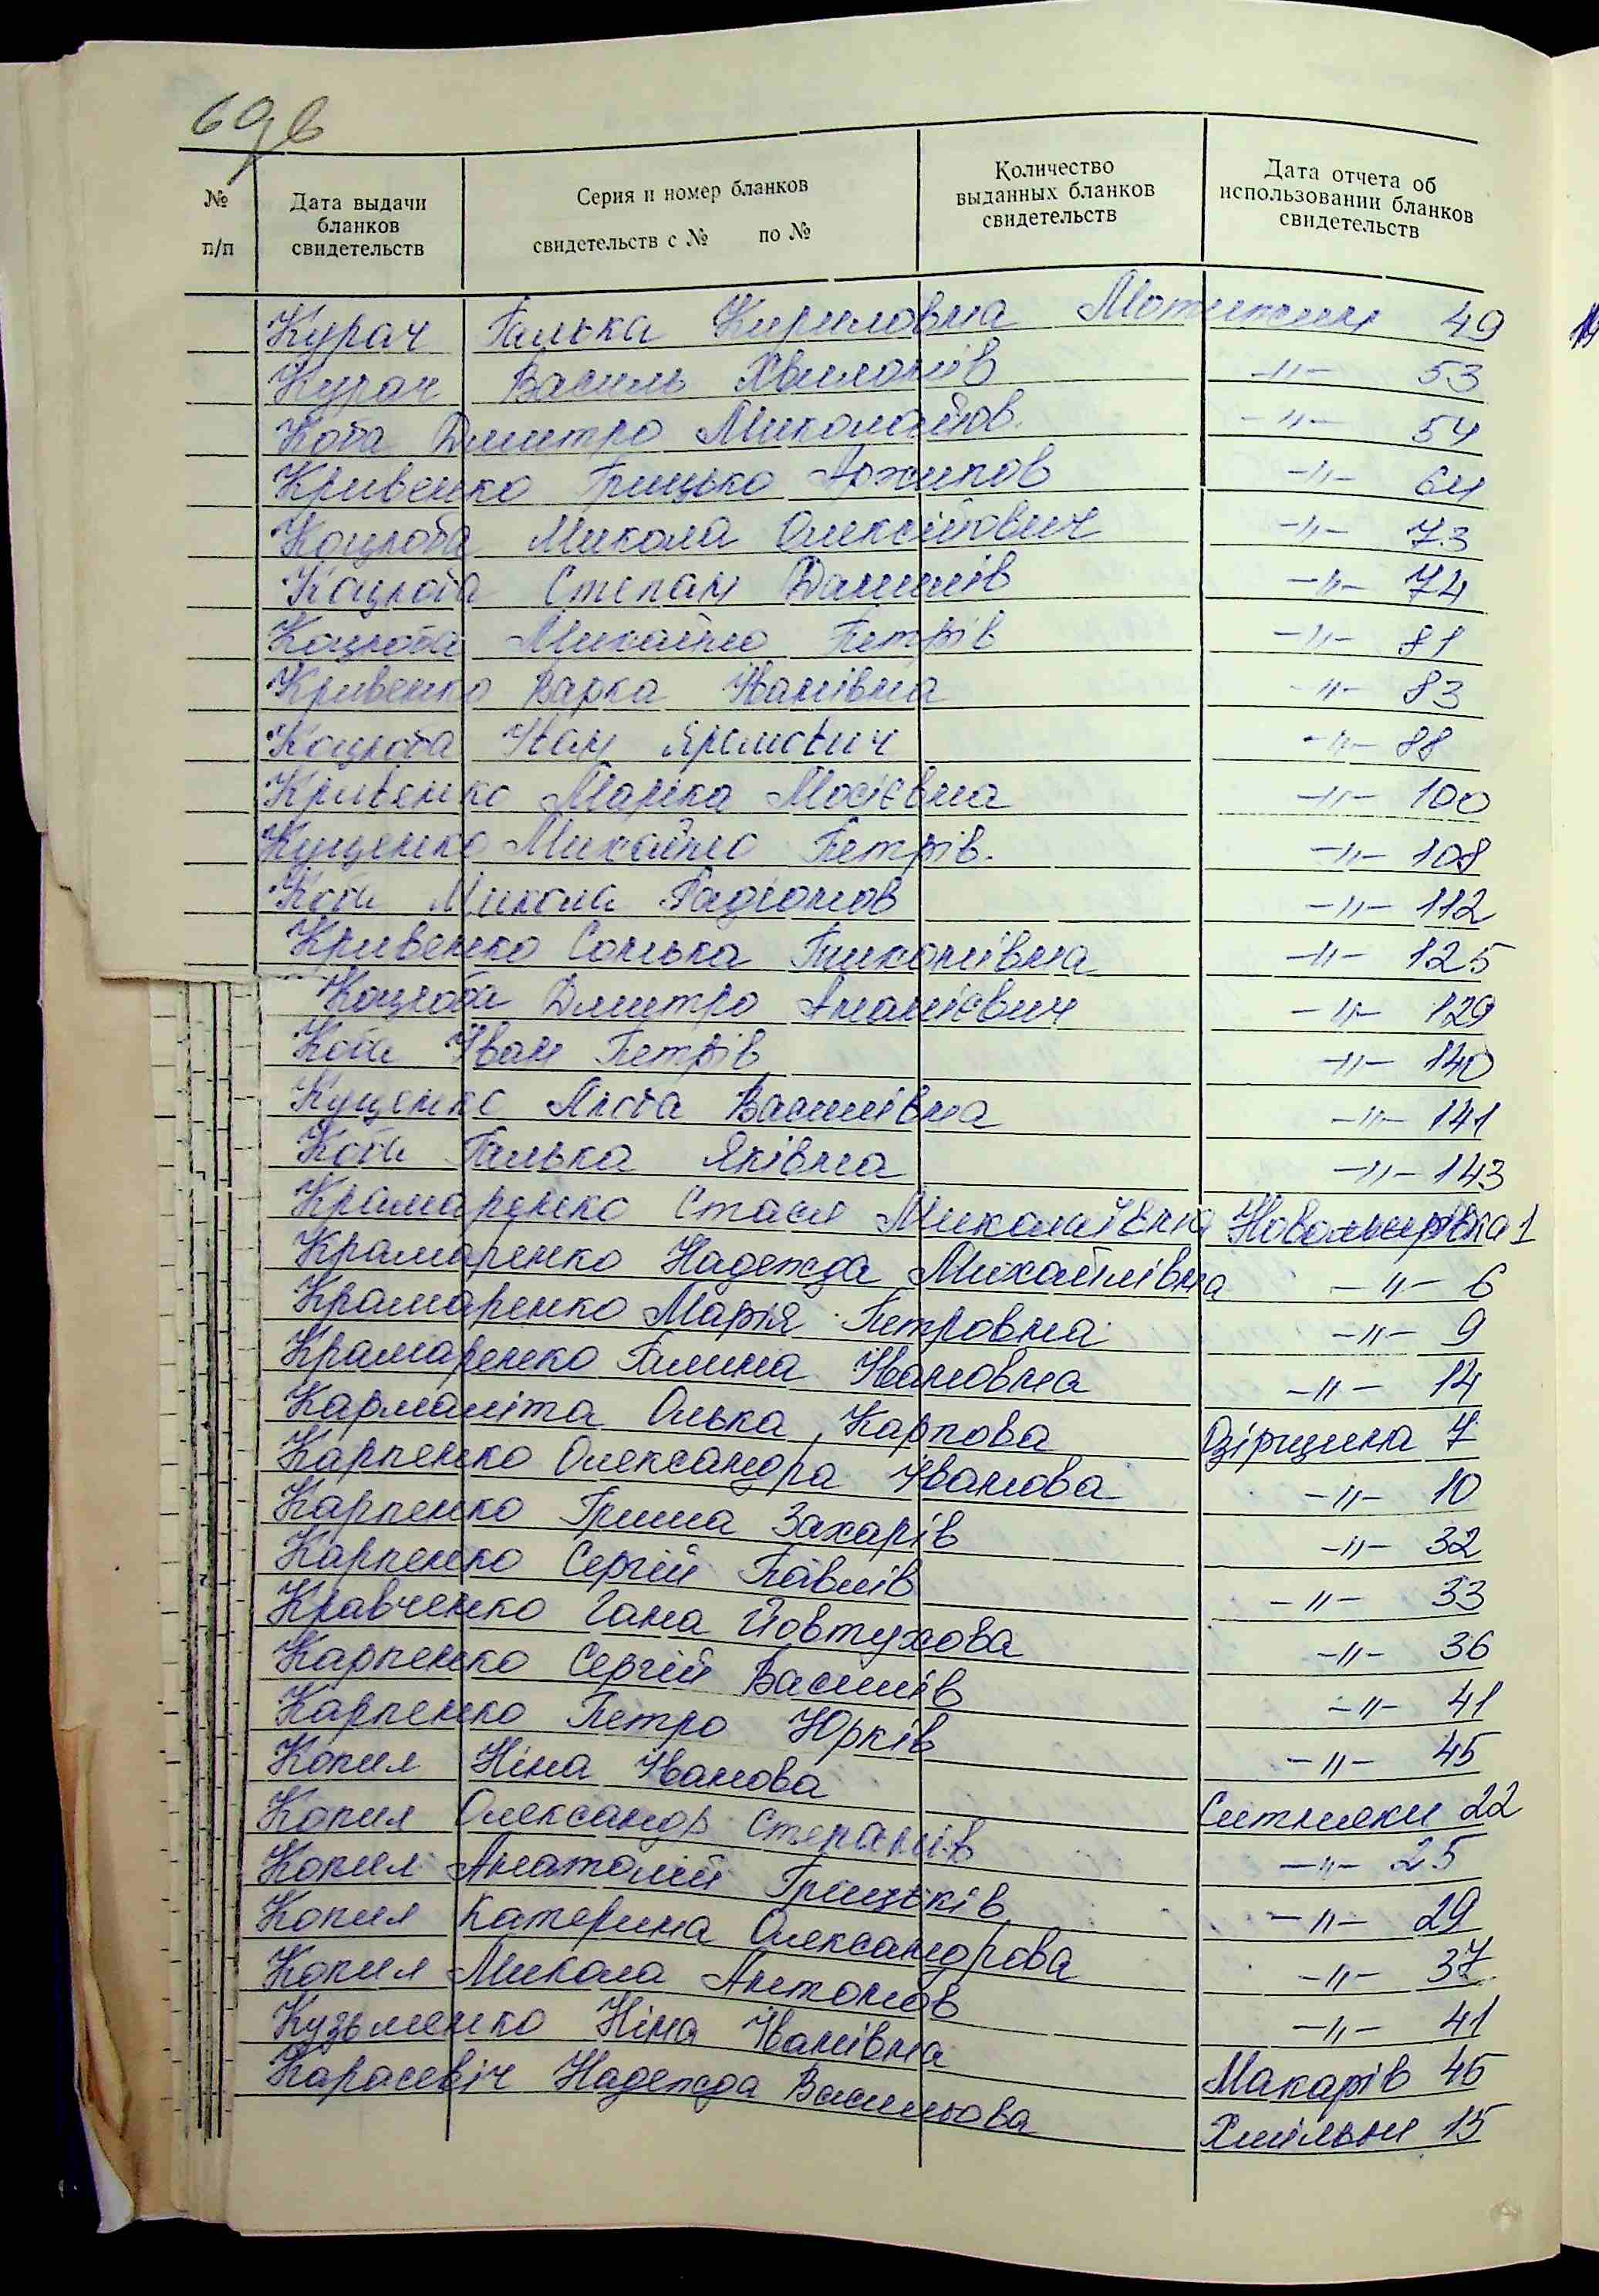 69 в
№ п/п
Дата выдачи бланков свидетельств
Серия и номер бланков свидетельств с № по №
Количество выданных бланков свидетельств
Дата отчета об использовании бланков свидетельств
Курач Галька Кириловна Мотижин 49
Курач Василь Хвилонів -"- 53
Коба Дмитро Миколайов. -"- 54
Кривенко Грицько Архипов -"- 64
Коцюба Микола Олексійович -"- 73
Коцюба Степан Данилів -"- 74
Коцюба Михайло Петрів -"- 81
Кривенко Варка Іванівна -"- 83
Коцюба Іван Яремович -"- 88
Кривенко Марійка Мосієвна -"- 100
Кущенко Михайло Петрів. -"- 108
Коба Микола Радіонов -"- 112
Кривенко Сонька Тихонівна -"- 125
Коцюба Дмитро Ананієвич -"- 129
Коба Іван Петрів -"- 140
Кущенко Люба Василівна -"- 141
Коба Галька Яківна -"- 143
Крамаренко Стася Миколаївна Новомирівка 1
Крамаренко Надежда Михайлівна -"- 6
Крамаренко Марія Петровна -"- 9
Крамаренко Галина Івановна -"- 14
Карманіта Олька Карпова Озірщина 7
Карпенко Олександра Іванова -"- 10
Карпенко Гриша Захарів -"- 32
Карпенко Сергій Павлів -"- 33
Кравченко Гана Йовтухова -"- 36
Карпенко Сергій Василів -"- 41
Карпенко Петро Юрків -"- 45
Копил Ніна Іванова Ситняки 22
Копил Олександр Степанів -"- 25
Копил Анатолій Грицьків -"- 29
Копил Катерина Олександрова -"- 37
Копил Микола Антонов -"- 41
Кузьменко Ніна Іванівна Макарів 45
Карасевіч Надежда Васильова Хмільна 15